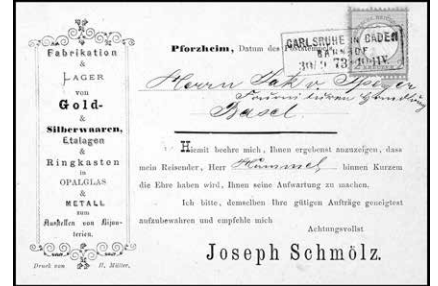 Fabrikation
&
LAGER
von
Gold-
&
Silberwaaren,
Etalagen
&
Ringkasten
in
OPALGLAS
&
METALL
zum
Ausstellen von Bijou-
terien.
Druck von H. Müller.
Pforzheim, Datum des Poststempels
CARLSRUHE IN BADEN
BAHNHOF
30/9 73
Herrn Jak v. Speyer
Handlung
Basel
Hiemit beehre mich, Ihnen ergebenst anzuzeigen, dass
mein Reisender, Herr Hummel, binnen Kurzem
die Ehre haben wird, Ihnen seine Aufwartung zu machen.
Ich bitte, demselben Ihre gütigen Aufträge geneigtest
aufzubewahren und empfehle mich
Achtungsvollst
Joseph Schmölz.